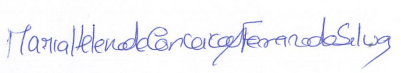 Maria Helena da Conceição Ferrano da Silva